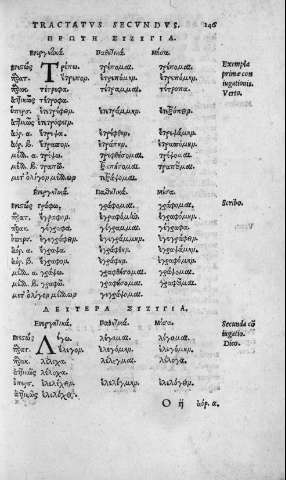 TRACTATVS SECVNDVS. 146
ΠΡΩΤΗ ΣΥΖΥΓΙΑ.
Ἐνεργητικά. Παθητικά. Μέσα.
ἐνεστώς Τρέπω. τρέπομαι. τρέπομαι. Exempla
παρατ. ἔτρεπον. ἐτρεπόμην. ἐτρεπόμην. primæ con
παρακ. τέτρεφα. τέτραμμαι. τέτροπα. iugationis.
ἀττικῶς τέτροφα. Verto.
ὑπερσ. ἐτετρόφειν. ἐτετράμμην. ἐτετρόπειν.
ἀόρ. α. ἔτρεψα. ἐτρέφθην. ἐτρεψάμην.
ἀόρ. β. ἔτραπον. ἐτράπην. ἐτραπόμην.
μέλ. α. τρέψω. τρεφθήσομαι. τρέψομαι.
μέλ. β. τραπῶ. τραπήσομαι. τραποῦμαι.
μετ' ὀλίγον μέλλων τετράψομαι.
Ἐνεργητικά. Παθητικά. Μέσα.
ἐνεστώς γράφω. γράφομαι. γράφομαι. Scribo.
παρατ. ἔγραφον. ἐγραφόμην. ἐγραφόμην.
παρακ. γέγραφα. γέγραμμαι. γέγραφα.
ὑπερσ. ἐγεγράφειν. ἐγεγράμμην. ἐγεγράφειν.
ἀόρ. α. ἔγραψα. ἐγράφθην. ἐγραψάμην.
ἀόρ. β. ἔγραφον. ἐγράφην. ἐγραφόμην.
μέλ. α. γράψω. γραφθήσομαι. γράψομαι.
μέλ. β. γραφῶ. γραφήσομαι. γραφοῦμαι.
μετ' ὀλίγον μέλλων γεγράψομαι.
ΔΕΥΤΕΡΑ ΣΥΖΥΓΙΑ.
Ἐνεργητικά. Παθητικά. Μέσα. Secunda cō
ἐνεστώς Λέγω. λέγομαι. λέγομαι. iugatio.
παρατ. ἔλεγον. ἐλεγόμην. ἐλεγόμην. Dico.
παρακ. λέλεχα. λέλεγμαι. λέλογα.
ἀττικῶς λέλοχα.
ὑπερσ. ἐλελέχειν. ἐλελέγμην. ἐλελόγειν.
ἀττικῶς ἐλελόχειν.
O ij ἀόρ. α.